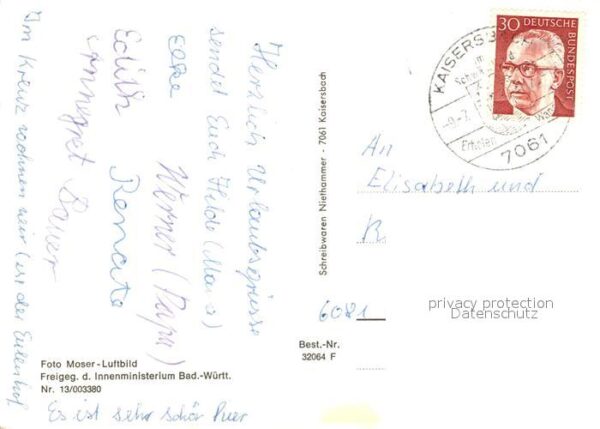 Herzlich Urlaubsgrüsse
sendet Euch Hilde (Mama)
Elke Werner (Papa)
Edith Renate
Annegret Bauer
Im Kreuz wohnen wir (ist der Eulenhof
Es ist sehr schön hier
Foto Moser-Luftbild
Freigeg. d. Innenministerium Bad.-Württ.
Nr. 13/003380
Schreibwaren Niethammer - 7061 Kaisersbach
Best.-Nr.
32064 F
30 DEUTSCHE BUNDESPOST
KAISERSB
7061
An
Elisabeth und
R
6081
privacy protection
Datenschutz